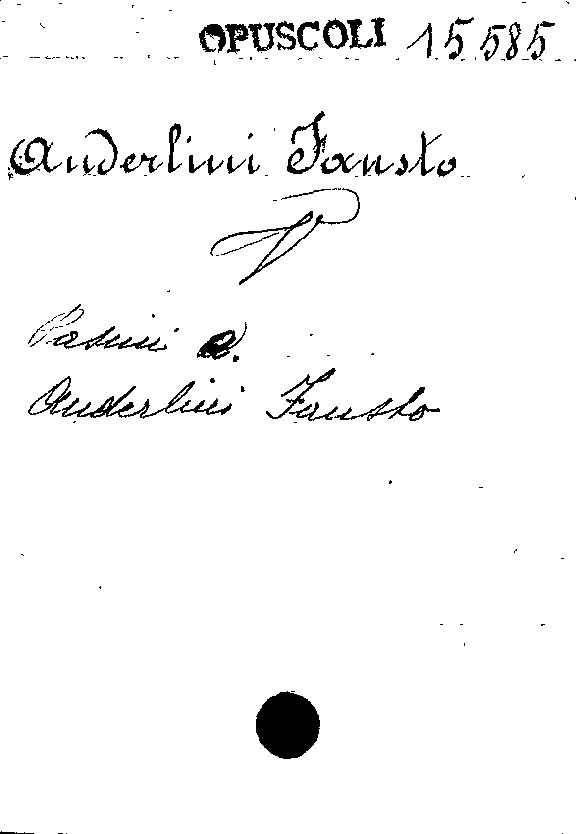 OPUSCOLI 15585
Anderlini Fausto
V
Pasini a.
Anderlini Fausto